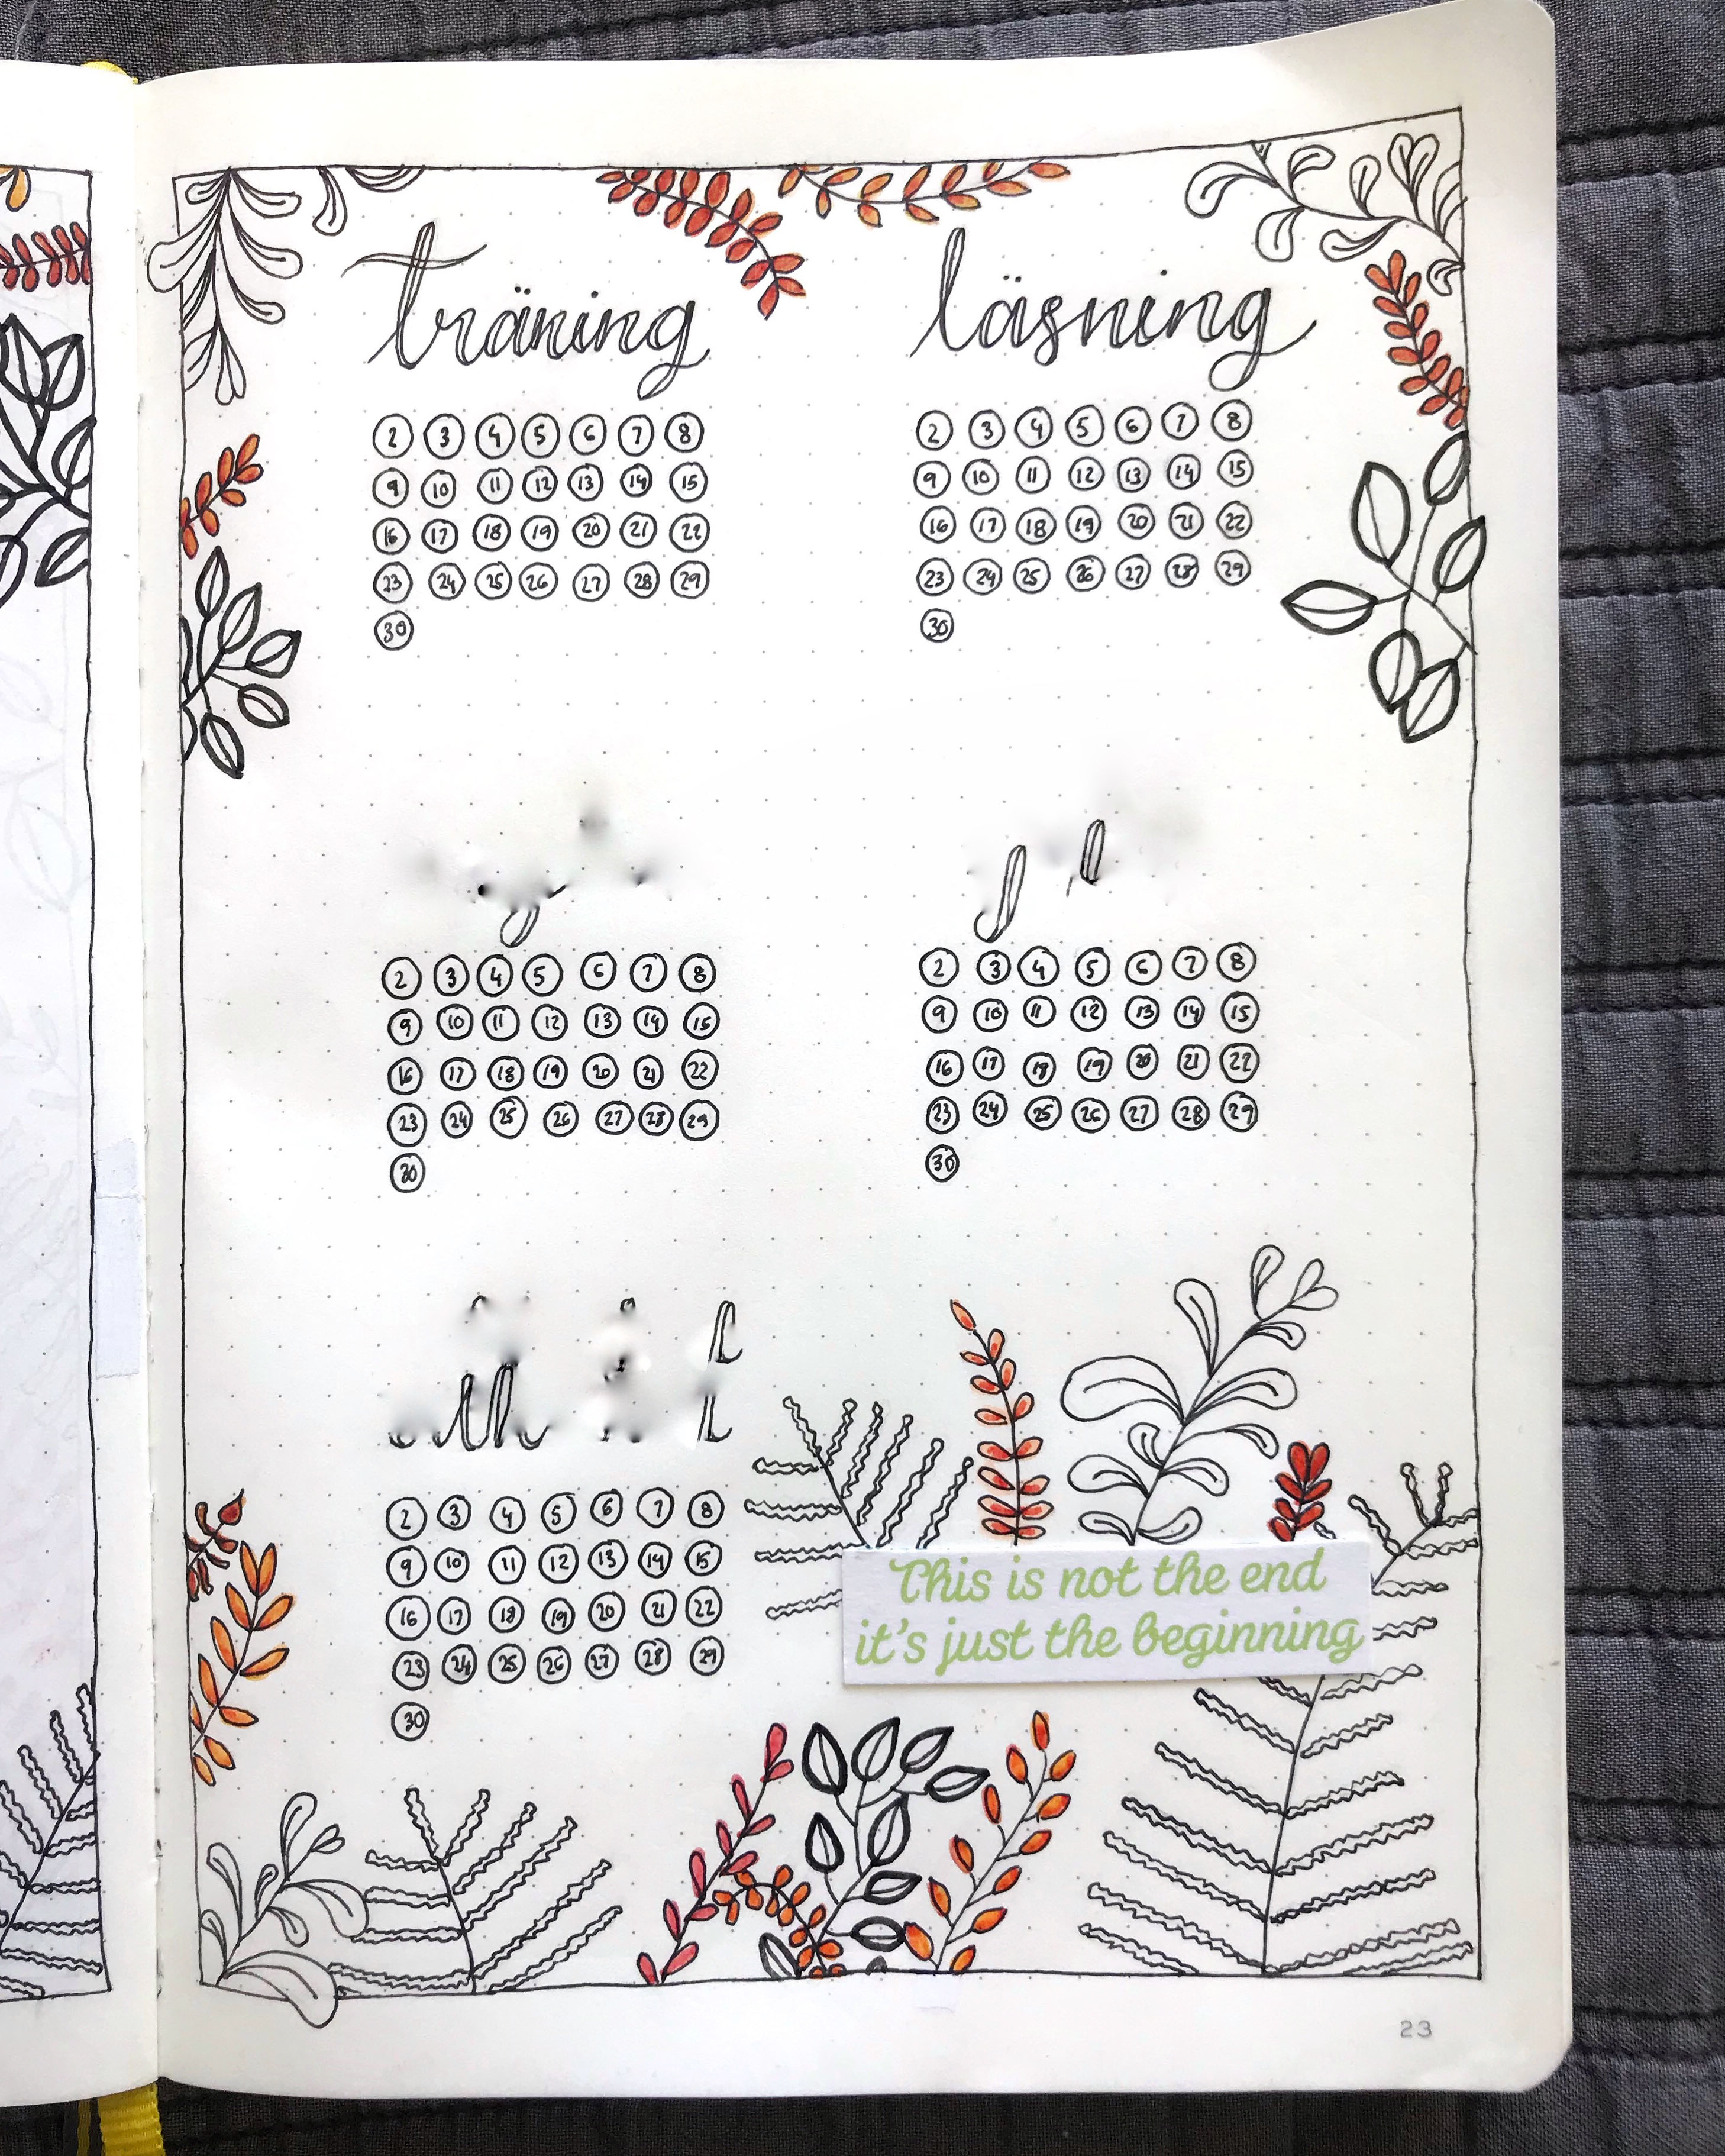 träning
2 3 4 5 6 7 8
9 10 11 12 13 14 15
16 17 18 19 20 21 22
23 24 25 26 27 28 29
30
läsning
2 3 4 5 6 7 8
9 10 11 12 13 14 15
16 17 18 19 20 21 22
23 24 25 26 27 28 29
30
2 3 4 5 6 7 8
9 10 11 12 13 14 15
16 17 18 19 20 21 22
23 24 25 26 27 28 29
30
2 3 4 5 6 7 8
9 10 11 12 13 14 15
16 17 18 19 20 21 22
23 24 25 26 27 28 29
30
2 3 4 5 6 7 8
9 10 11 12 13 14 15
16 17 18 19 20 21 22
23 24 25 26 27 28 29
30
This is not the end
it's just the beginning
23